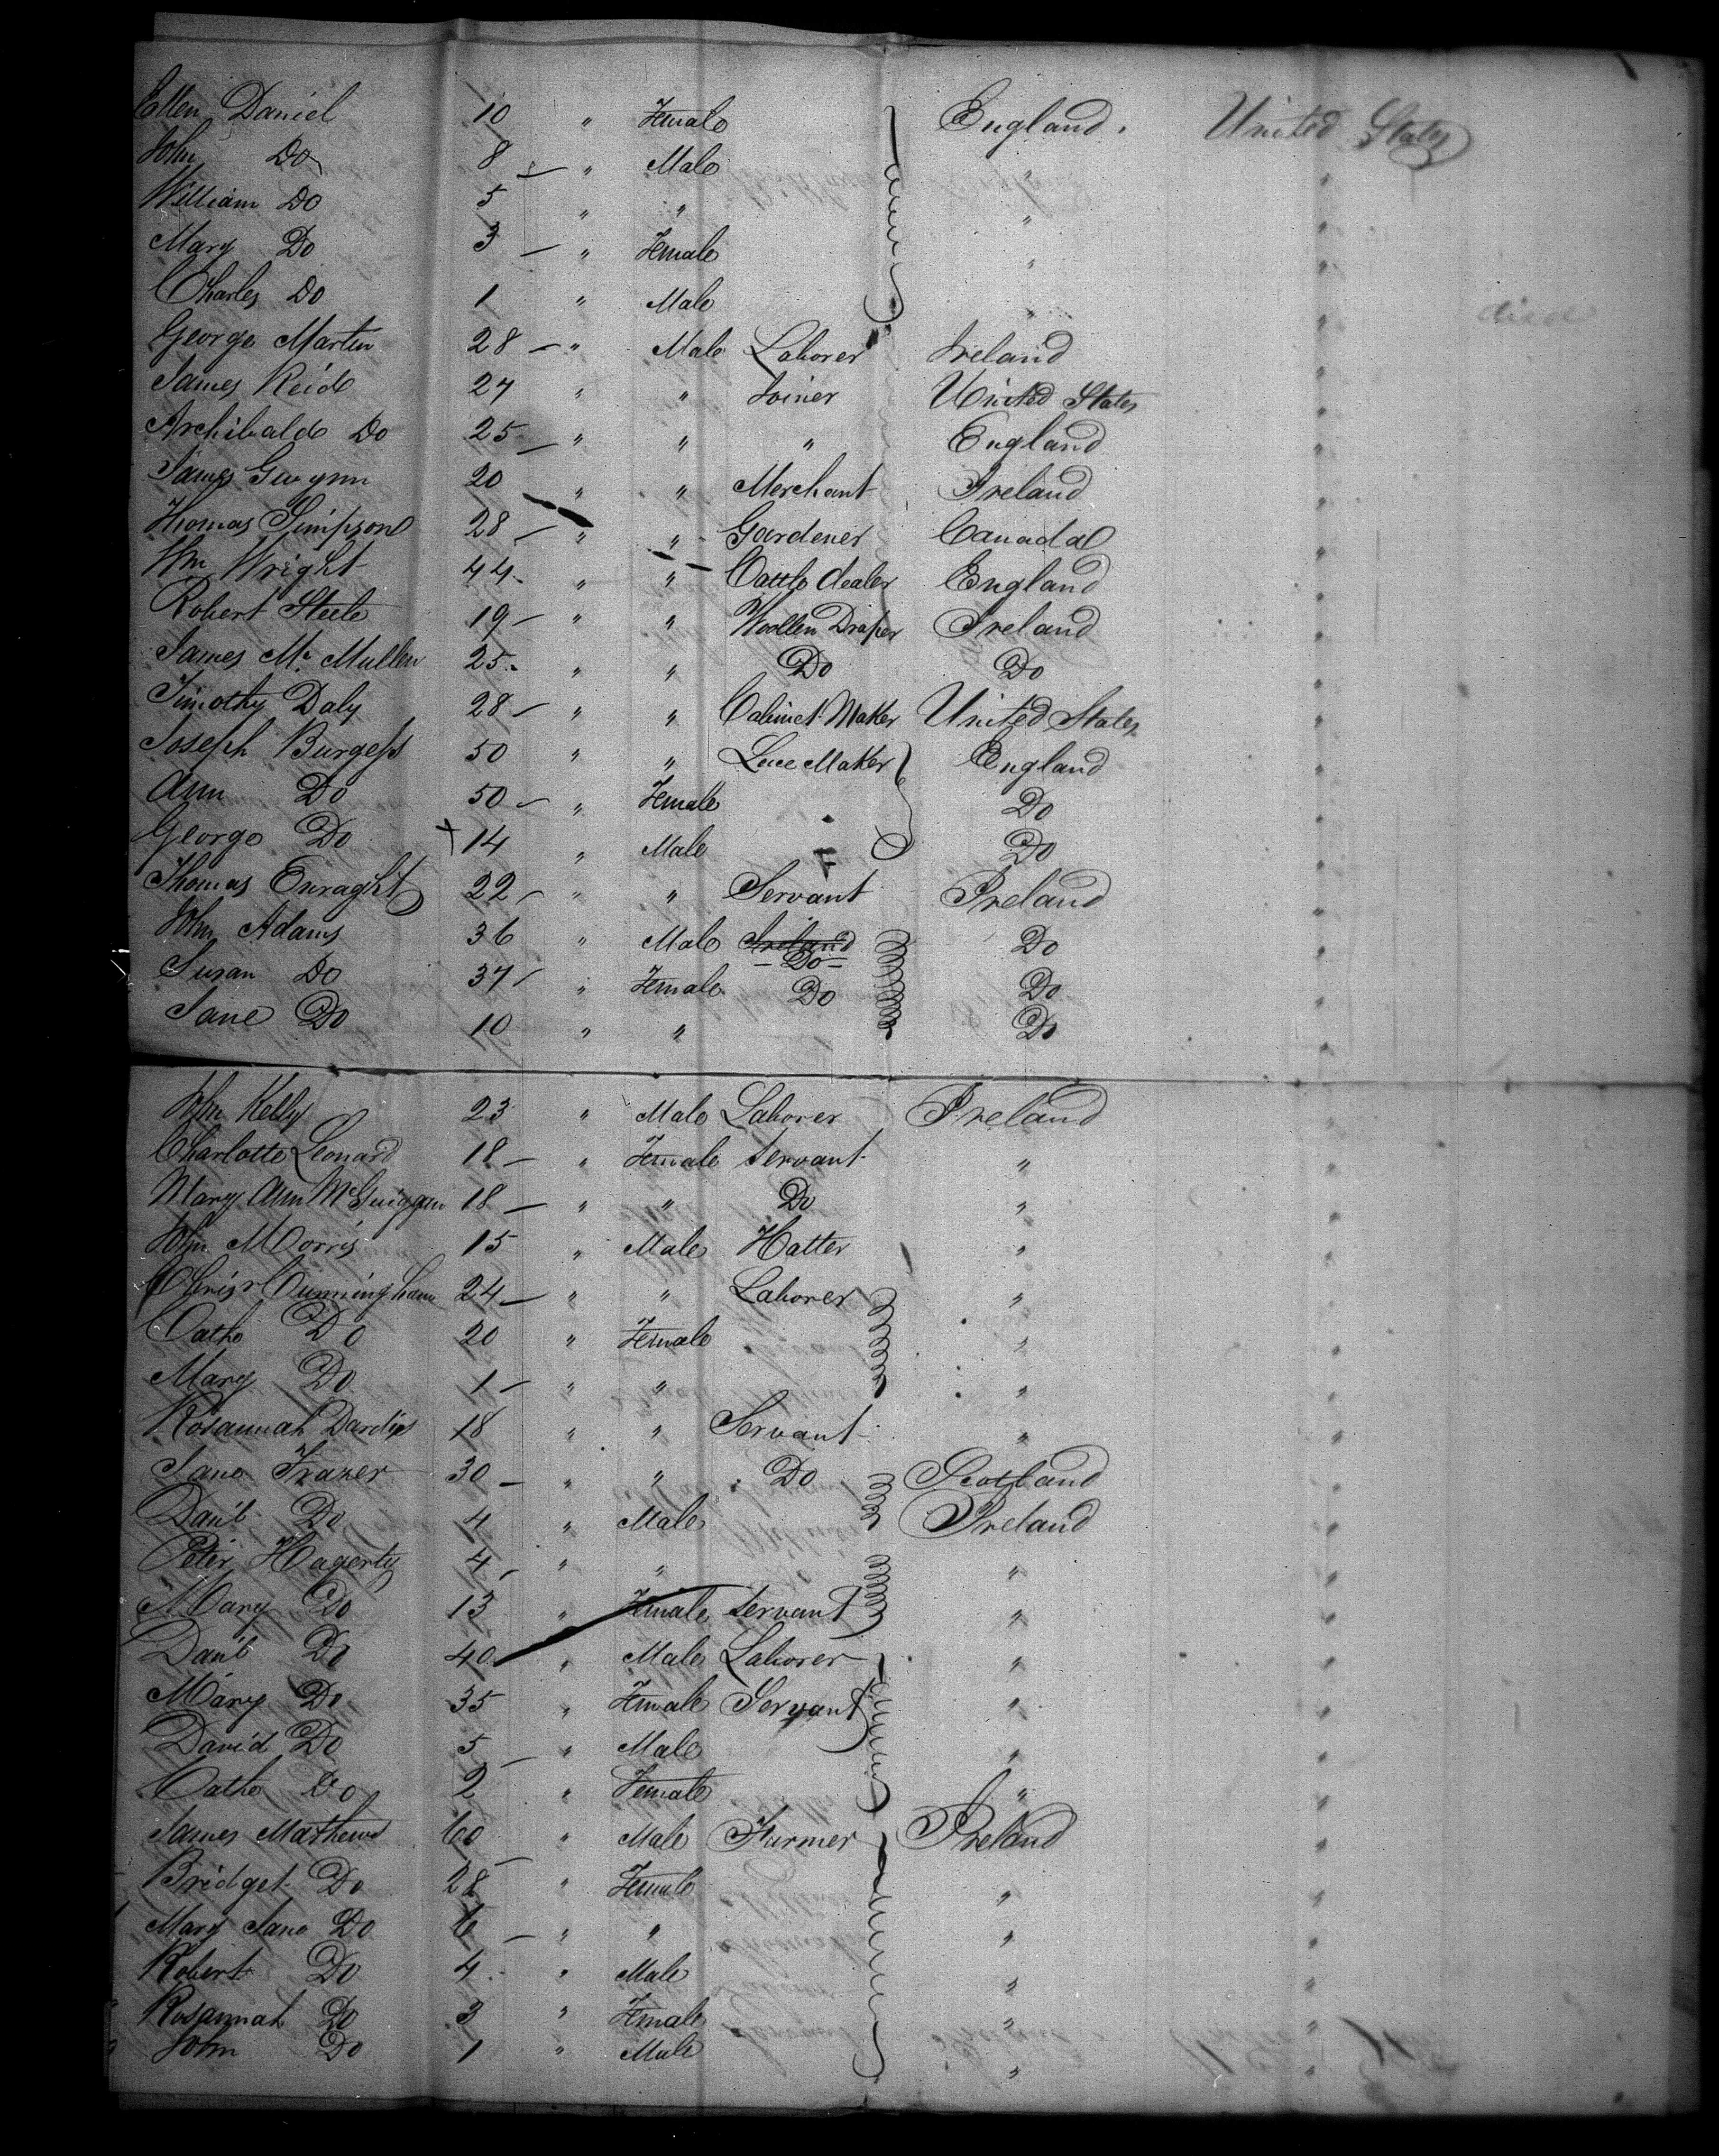 Ellen Daniel 10 " Female England. United States
John Do 8 " Male " "
William Do 5 " " " "
Mary Do 3 " Female " "
Charles Do 1 " Male " " died
George Martin 28 " Male Laborer Ireland "
James Reid 27 " " Joiner United States "
Archibald Do 25 " " " England "
James Gwynn 20 " " Merchant Ireland "
Thomas Simpson 28 " " Gardener Canada "
Wm Wright 44 " " Cattle dealer England "
Robert Steele 19 " " Woollen Draper Ireland "
James Mc Mullen 25 " " Do Do "
Timothy Daly 28 " " Cabinet Maker United States "
Joseph Burgess 50 " " Lace Maker England "
Ann Do 50 " Female Do "
George Do x 14 " Male Do "
Thomas Enraght 22 " " Servant Ireland "
John Adams 36 " Male Ireland Do Do "
Susan Do 37 " Female Do Do "
Jane Do 10 " " Do "
John Kelly 23 " Male Laborer Ireland "
Charlotte Leonard 18 " Female Servant " "
Mary Ann McGuiggan 18 " " Do " "
John Morris 15 " Male Hatter " "
Chrisr Cunningham 24 " " Laborer " "
Cathe Do 20 " Female " "
Mary Do 1 " " " "
Rosannah 18 " " Servant " "
Jane Frazer 30 " " Do Scotland "
Danl Do 4 " Male Ireland "
Peter Hagerty 4 " " " "
Mary Do 13 " Female Servant " "
Danl Do 40 " Male Laborer " "
Mary Do 35 " Female Servant " "
David Do 5 " Male " "
Cathe Do 2 " Female " "
James Mathews 60 " Male Farmer Ireland "
Bridget Do 28 " Female " "
Mary Jane Do 6 " " " "
Robert Do 4 " Male " "
Rosannah Do 3 " Female " "
John Do 1 " Male " "